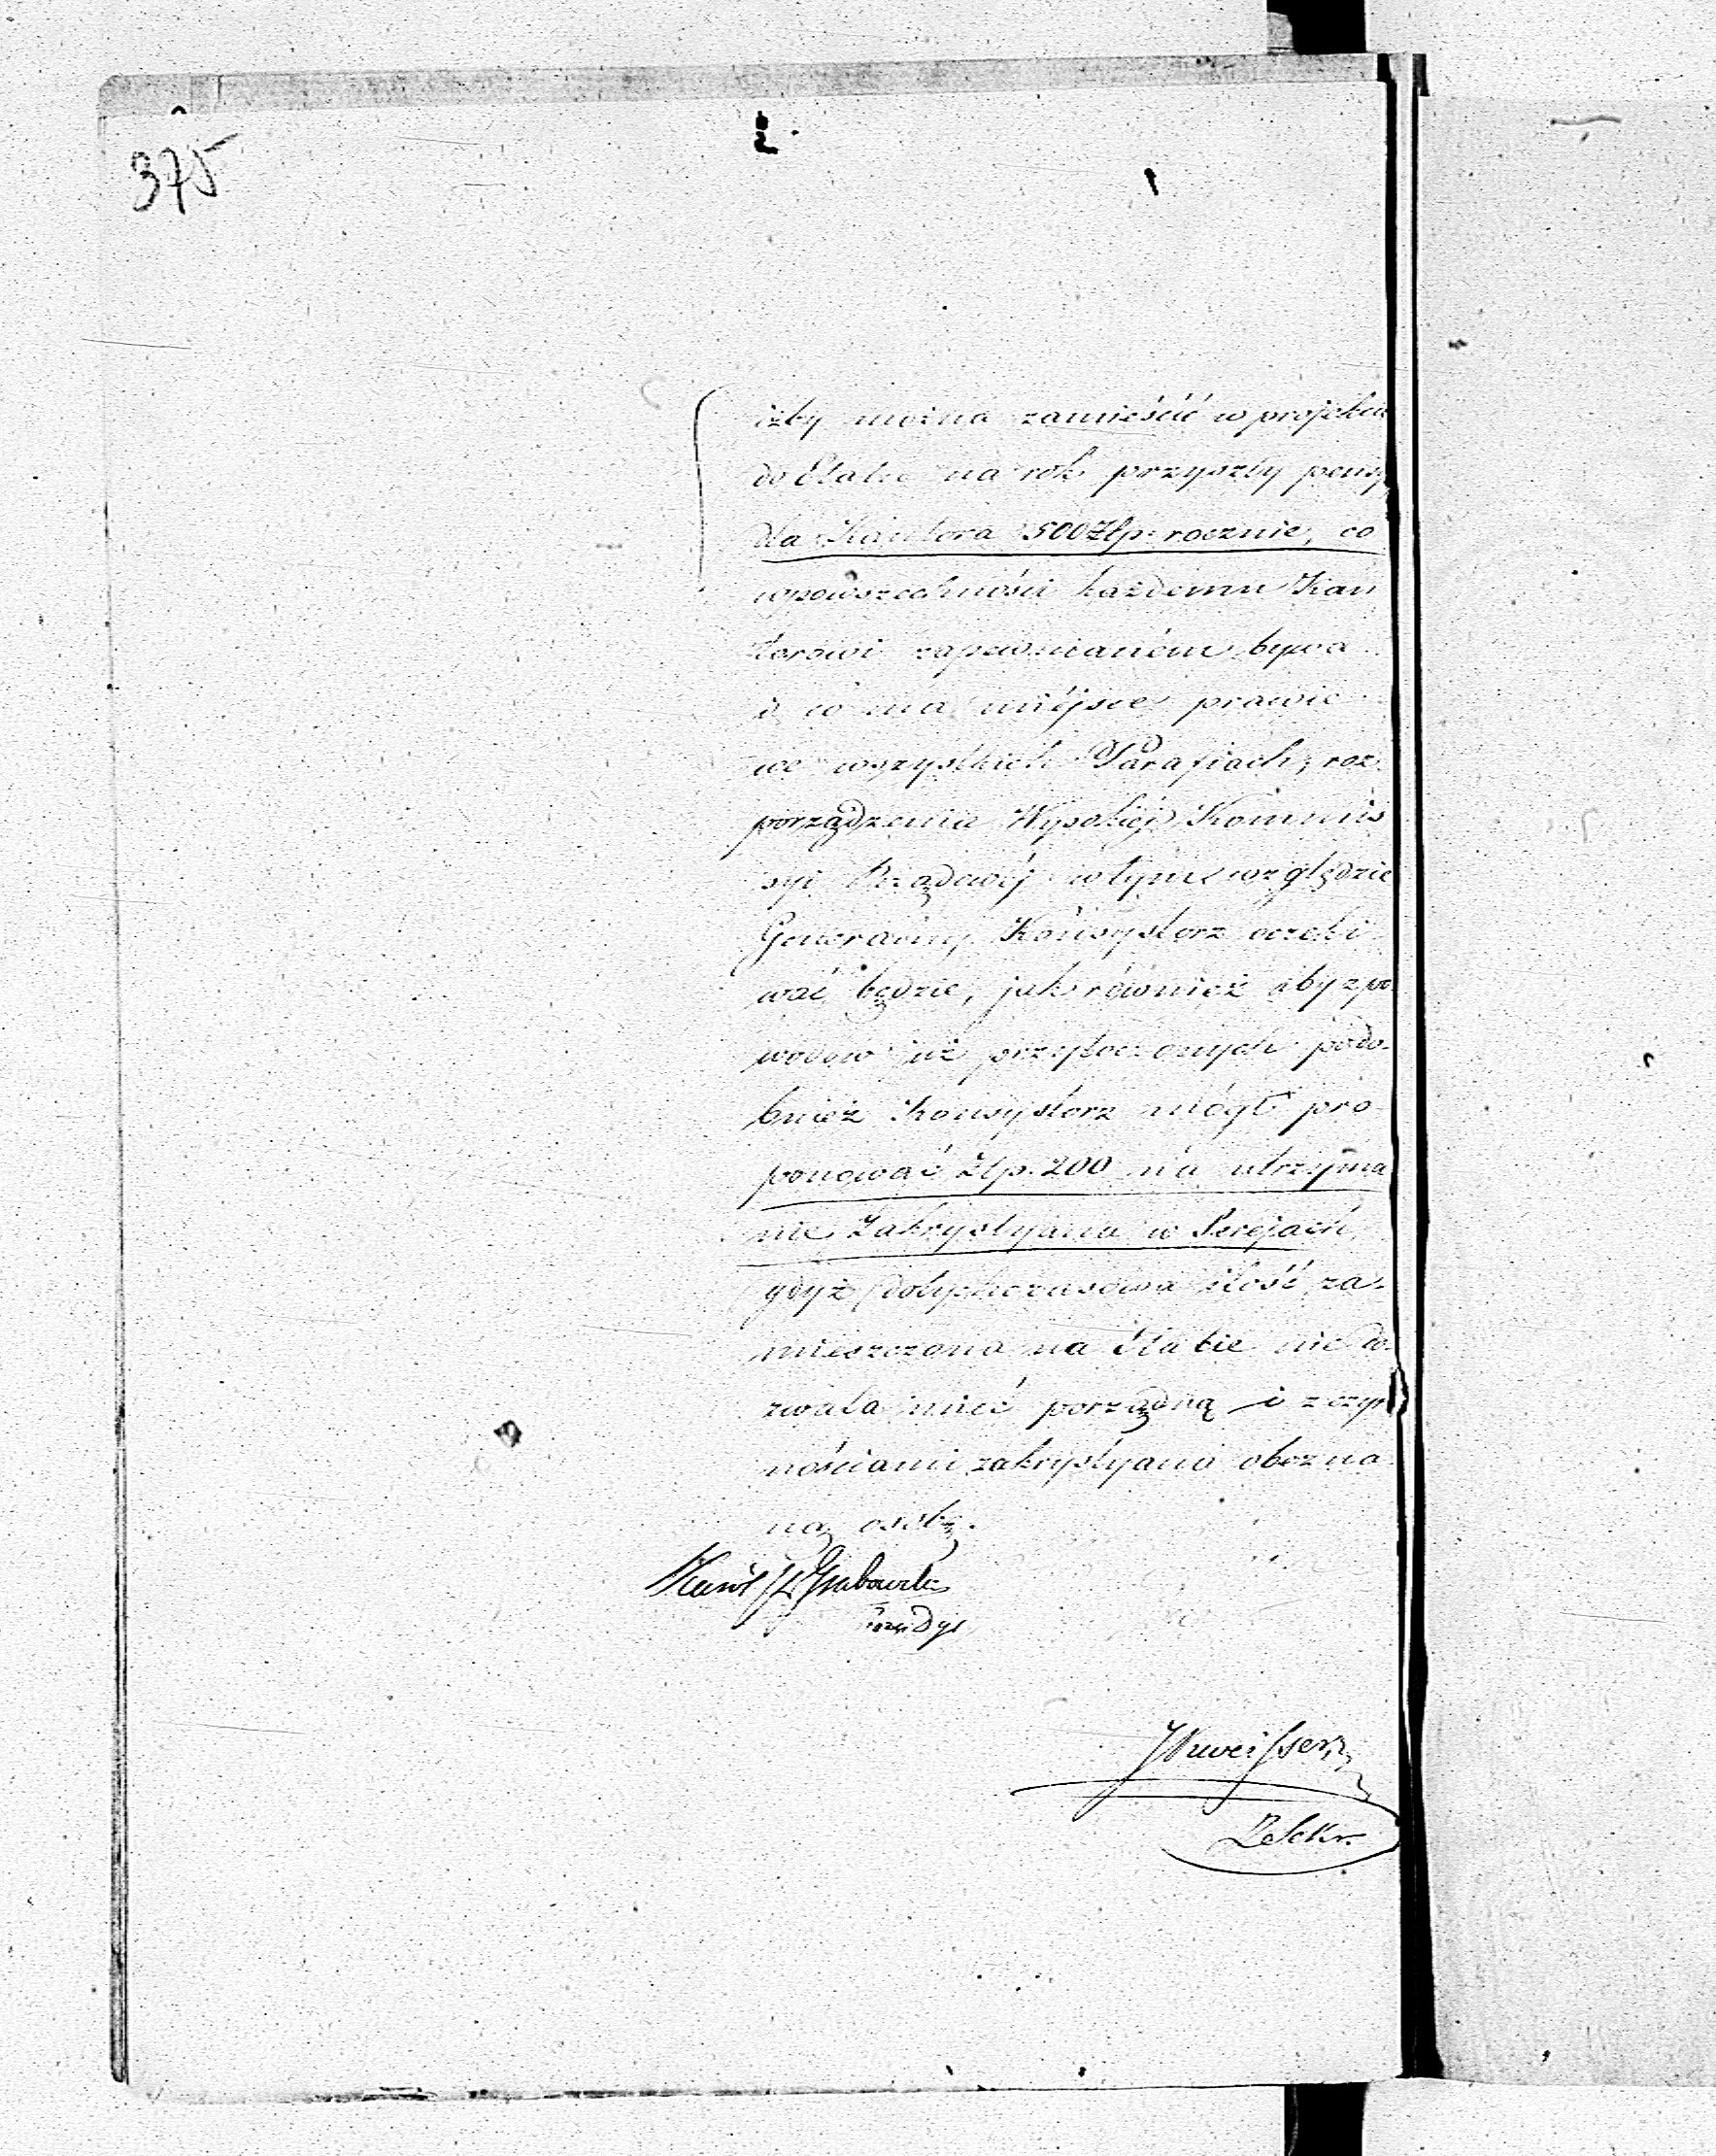 375
iżby można zamieścić w projekcie
do Etatu na rok przyszły pensy
dla Kantora 500 Złp. rocznie, co
w powszechności każdemu Kan
torowi zapewnianém bywa
i co ma miéjsce prawie
we wszystkich Parafiach; roz
porządzenia Wysokiéj Kommis
syi Rządowéj w tym względzie
Generalny Konsystorz oczeki
wać będzie, jak również aby z po
wodów już przytoczonych podo-
bnież Konsystorz mógł pro
ponować Złp. 200 na utrzyma
nie Zakrystyana w Serejach,
gdyż dotychczasowa ilość za-
mieszczona na Etacie nie do
zwala mieć porządną i z czyn
nościami zakrystyana obezna
ną osobę.
Karol Grabowski